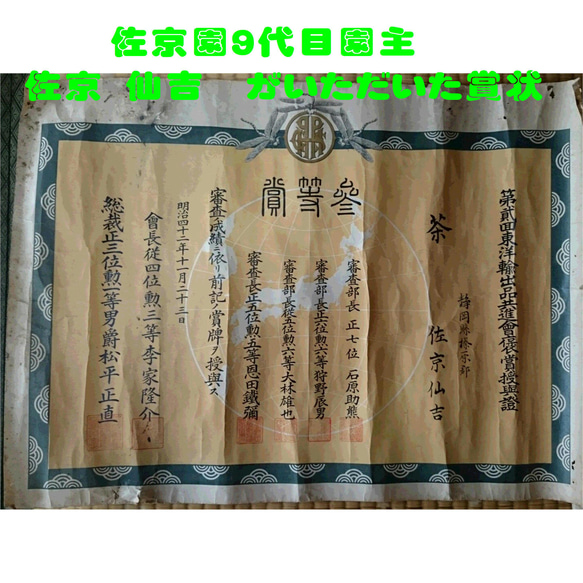 佐京園9代目園主
佐京 仙吉 がいただいた賞状
參等賞
第貳回東洋輸出品共進會褒賞授與證
静岡縣榛原郡
茶
佐京仙吉
審査部長 正七位 石原助熊
審査部長正六位勲六等狩野辰男
審査部長從五位勲六等大林雄也
審査長正五位勲五等恩田鐵彌
審査成績ニ依リ前記ノ賞牌ヲ授與ス
明治四十二年十一月二十三日
會長從四位勲三等李家隆介
総裁正三位勲一等男爵松平正直